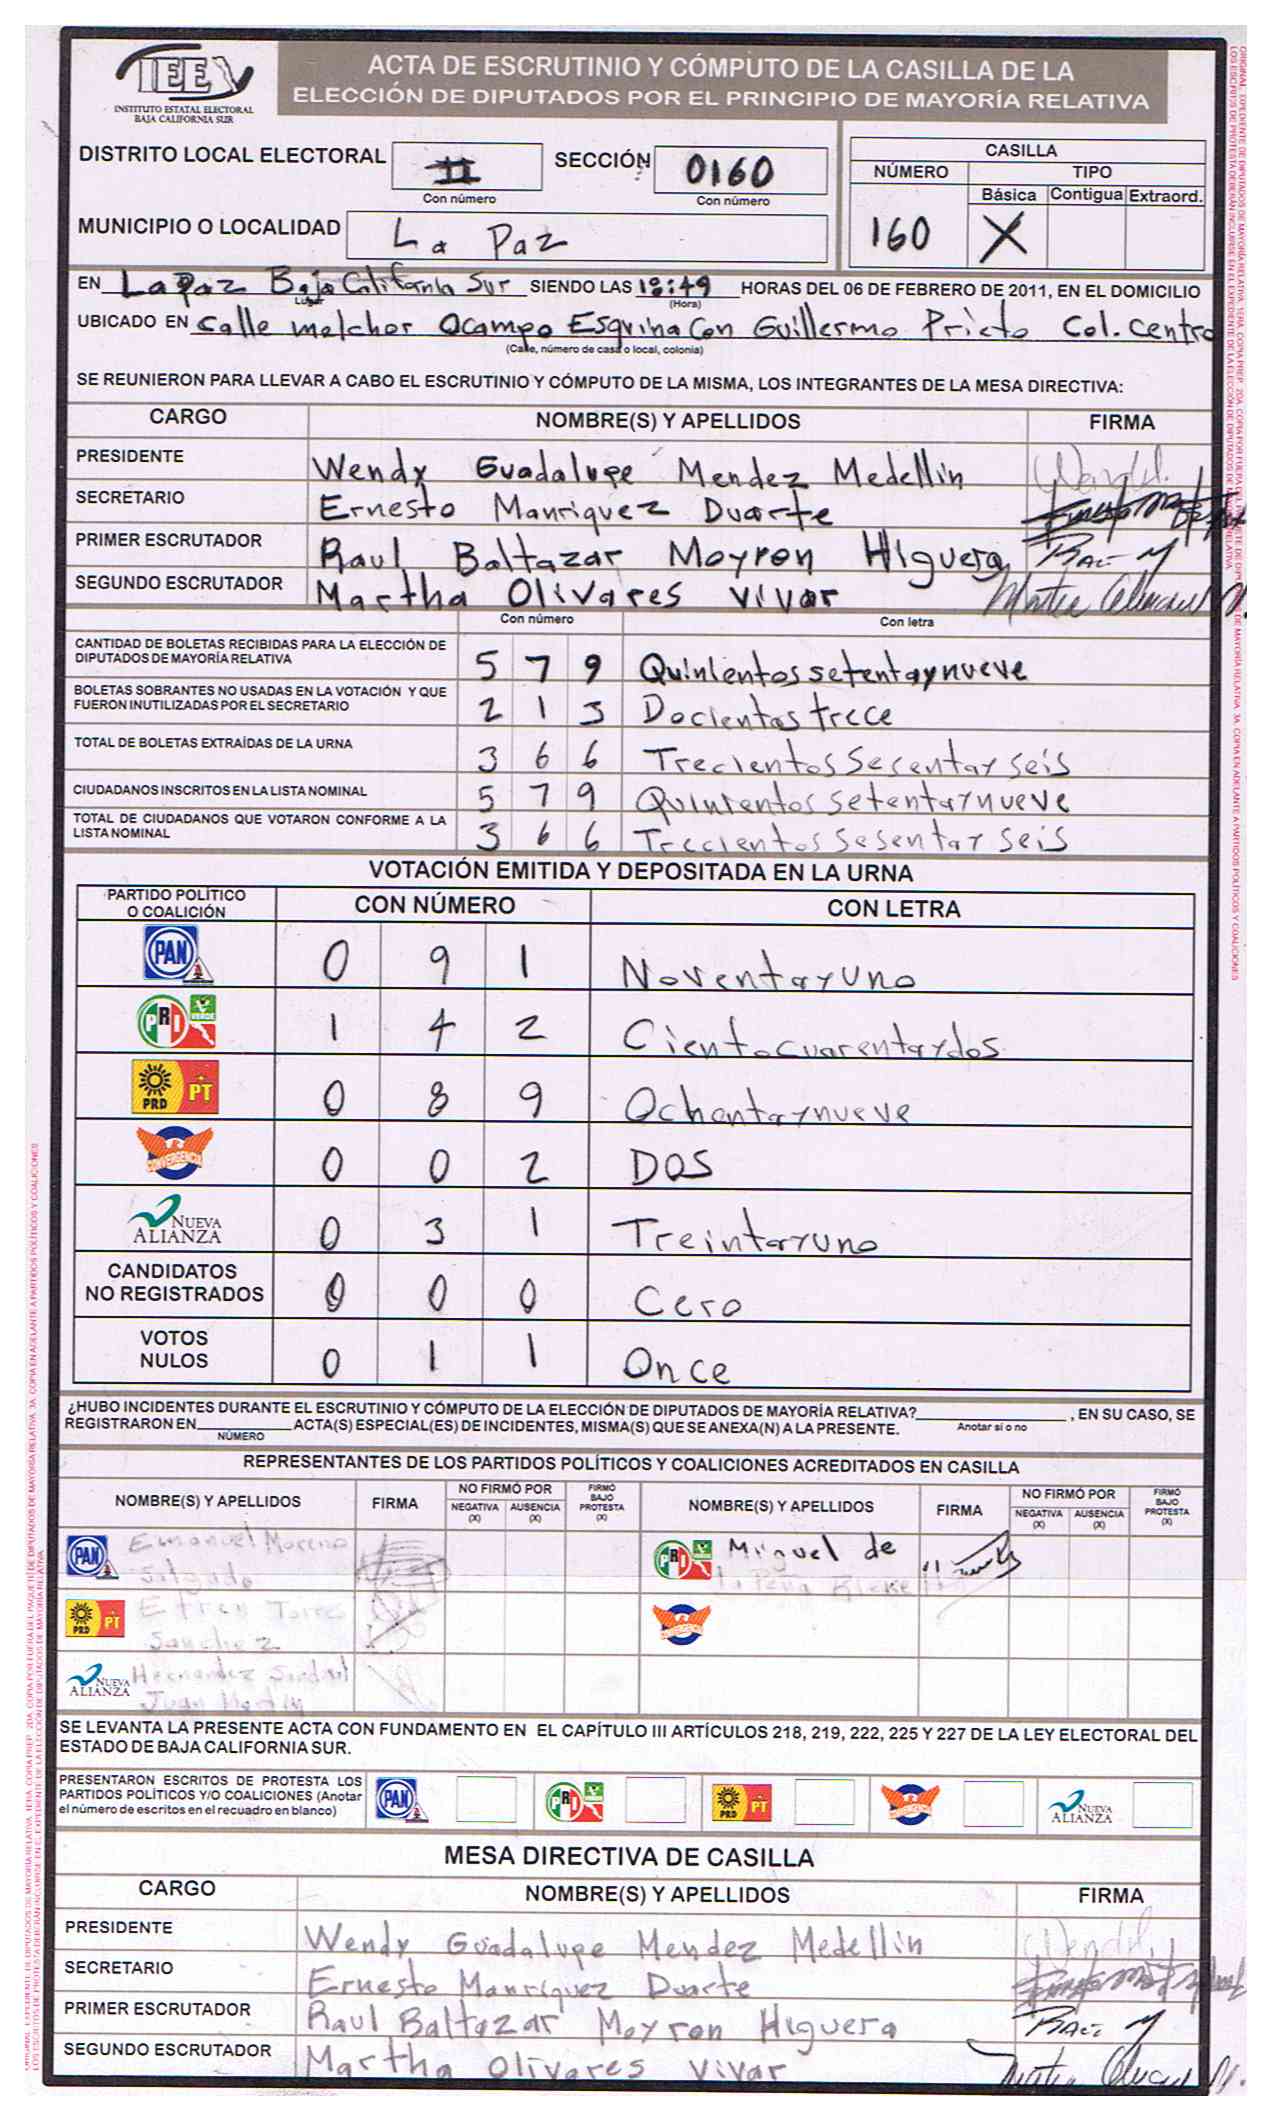 IEE
INSTITUTO ESTATAL ELECTORAL
BAJA CALIFORNIA SUR
ACTA DE ESCRUTINIO Y CÓMPUTO DE LA CASILLA DE LA
ELECCIÓN DE DIPUTADOS POR EL PRINCIPIO DE MAYORÍA RELATIVA
DISTRITO LOCAL ELECTORAL II SECCIÓN 0160
Con número Con número
MUNICIPIO O LOCALIDAD La Paz
CASILLA
NÚMERO TIPO
Básica Contigua Extraord.
160 X
EN La Paz Baja California Sur SIENDO LAS 18:49 HORAS DEL 06 DE FEBRERO DE 2011, EN EL DOMICILIO
Lugar (Hora)
UBICADO EN Calle melchor Ocampo Esquina Con Guillermo Prieto Col. Centro
(Calle, número de casa o local, colonia)
SE REUNIERON PARA LLEVAR A CABO EL ESCRUTINIO Y CÓMPUTO DE LA MISMA, LOS INTEGRANTES DE LA MESA DIRECTIVA:
CARGO NOMBRE(S) Y APELLIDOS FIRMA
PRESIDENTE Wendy Guadalupe Mendez Medellin
SECRETARIO Ernesto Manriquez Duarte
PRIMER ESCRUTADOR Raul Baltazar Moyron Higuera
SEGUNDO ESCRUTADOR Martha Olivares Vivar
Con número Con letra
CANTIDAD DE BOLETAS RECIBIDAS PARA LA ELECCIÓN DE
DIPUTADOS DE MAYORÍA RELATIVA 5 7 9 Quinientos setenta y nueve
BOLETAS SOBRANTES NO USADAS EN LA VOTACIÓN Y QUE
FUERON INUTILIZADAS POR EL SECRETARIO 2 1 3 Docientas trece
TOTAL DE BOLETAS EXTRAÍDAS DE LA URNA 3 6 6 Trecientos sesenta y seis
CIUDADANOS INSCRITOS EN LA LISTA NOMINAL 5 7 9 Quinientos setenta y nueve
TOTAL DE CIUDADANOS QUE VOTARON CONFORME A LA
LISTA NOMINAL 3 6 6 Trecientos sesenta y seis
VOTACIÓN EMITIDA Y DEPOSITADA EN LA URNA
PARTIDO POLÍTICO
O COALICIÓN CON NÚMERO CON LETRA
PAN 0 9 1 Noventa y uno
PRI VERDE 1 4 2 Ciento cuarenta y dos
PRD PT 0 8 9 Ochenta y nueve
CONVERGENCIA 0 0 2 DOS
NUEVA ALIANZA 0 3 1 Treinta y uno
CANDIDATOS
NO REGISTRADOS 0 0 0 Cero
VOTOS
NULOS 0 1 1 Once
¿HUBO INCIDENTES DURANTE EL ESCRUTINIO Y CÓMPUTO DE LA ELECCIÓN DE DIPUTADOS DE MAYORÍA RELATIVA? , EN SU CASO, SE
Anotar si o no
REGISTRARON EN ACTA(S) ESPECIAL(ES) DE INCIDENTES, MISMA(S) QUE SE ANEXA(N) A LA PRESENTE.
NÚMERO
REPRESENTANTES DE LOS PARTIDOS POLÍTICOS Y COALICIONES ACREDITADOS EN CASILLA
NOMBRE(S) Y APELLIDOS FIRMA NO FIRMÓ POR NEGATIVA (X) AUSENCIA (X) FIRMÓ BAJO PROTESTA (X) NOMBRE(S) Y APELLIDOS FIRMA NO FIRMÓ POR NEGATIVA (X) AUSENCIA (X) FIRMÓ BAJO PROTESTA (X)
PAN Emanuel Moreno Salgado PRI VERDE Miguel de la Peña
PRD PT Efren Torres Sanchez CONVERGENCIA
NUEVA ALIANZA Hernandez Juan Martin
SE LEVANTA LA PRESENTE ACTA CON FUNDAMENTO EN EL CAPÍTULO III ARTÍCULOS 218, 219, 222, 225 Y 227 DE LA LEY ELECTORAL DEL
ESTADO DE BAJA CALIFORNIA SUR.
PRESENTARON ESCRITOS DE PROTESTA LOS
PARTIDOS POLÍTICOS Y/O COALICIONES (Anotar
el número de escritos en el recuadro en blanco)
PAN PRI VERDE PRD PT CONVERGENCIA NUEVA ALIANZA
MESA DIRECTIVA DE CASILLA
CARGO NOMBRE(S) Y APELLIDOS FIRMA
PRESIDENTE Wendy Guadalupe Mendez Medellin
SECRETARIO Ernesto Manriquez Duarte
PRIMER ESCRUTADOR Raul Baltazar Moyron Higuera
SEGUNDO ESCRUTADOR Martha Olivares Vivar